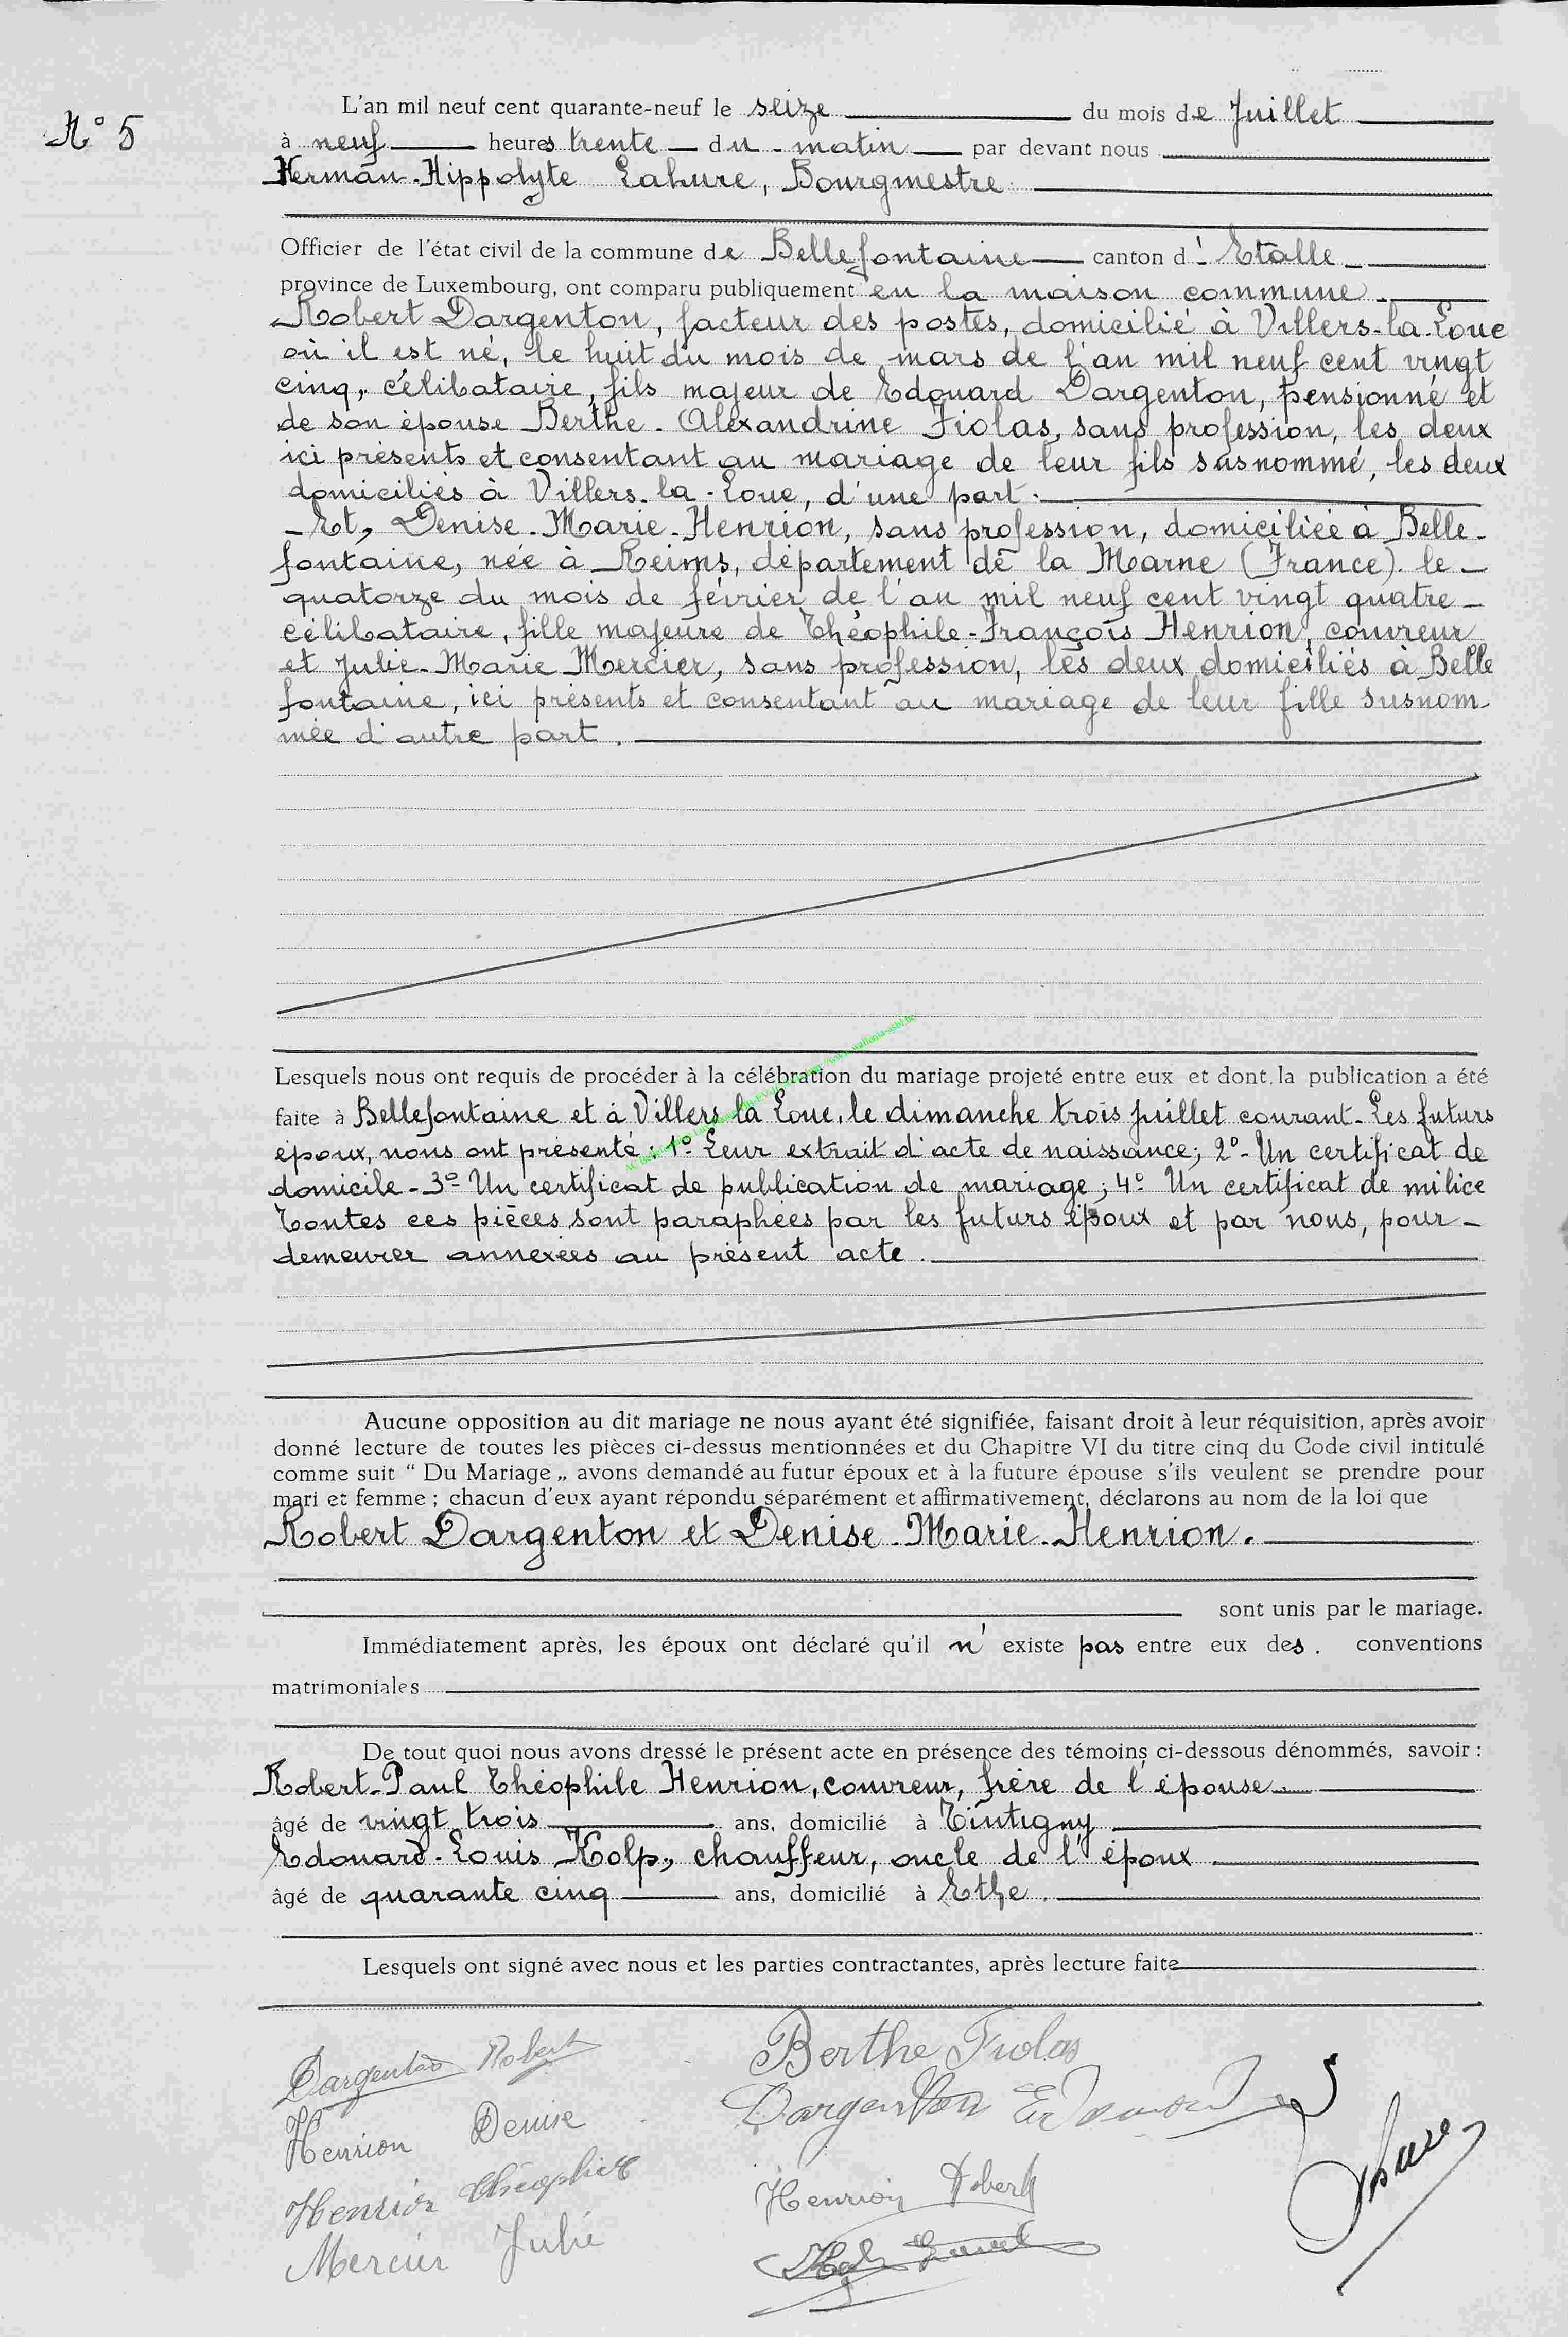 N° 5
L'an mil neuf cent quarante-neuf le seize du mois de Juillet
à neuf heures trente du matin par devant nous
Herman-Hippolyte Lahure, Bourgmestre
Officier de l'état civil de la commune de Bellefontaine canton d'Etalle
province de Luxembourg, ont comparu publiquement en la maison commune.
Robert Dargenton, facteur des postes, domicilié à Villers-la-Loue
où il est né, le huit du mois de mars de l'an mil neuf cent vingt
cinq, célibataire, fils majeur de Edouard Dargenton, pensionné et
de son épouse Berthe-Alexandrine Fiolas, sans profession, les deux
ici présents et consentant au mariage de leur fils susnommé, les deux
domiciliés à Villers-la-Loue, d'une part.
- Et, Denise-Marie-Henrion, sans profession, domiciliée à Belle-
fontaine, née à Reims, département de la Marne (France). le
quatorze du mois de février de l'an mil neuf cent vingt quatre
célibataire, fille majeure de Théophile-François Henrion, couvreur
et Julie-Marie Mercier, sans profession, les deux domiciliés à Belle
fontaine, ici présents et consentant au mariage de leur fille susnom-
mée d'autre part.
Lesquels nous ont requis de procéder à la célébration du mariage projeté entre eux et dont la publication a été
faite à Bellefontaine et à Villers la Loue, le dimanche trois juillet courant. Les futurs
époux, nous ont présenté : 1° Leur extrait d'acte de naissance; 2°- Un certificat de
domicile - 3°- Un certificat de publication de mariage; 4° Un certificat de milice
Toutes ces pièces sont paraphées par les futurs époux et par nous, pour
demeurer annexées au présent acte.
Aucune opposition au dit mariage ne nous ayant été signifiée, faisant droit à leur réquisition, après avoir
donné lecture de toutes les pièces ci-dessus mentionnées et du Chapitre VI du titre cinq du Code civil intitulé
comme suit “ Du Mariage „ avons demandé au futur époux et à la future épouse s'ils veulent se prendre pour
mari et femme ; chacun d'eux ayant répondu séparément et affirmativement, déclarons au nom de la loi que
Robert Dargenton et Denise-Marie-Henrion.
sont unis par le mariage.
Immédiatement après, les époux ont déclaré qu'il n'existe pas entre eux des. conventions
matrimoniales
De tout quoi nous avons dressé le présent acte en présence des témoins ci-dessous dénommés, savoir :
Robert-Paul Théophile Henrion, couvreur, frère de l'épouse
âgé de vingt trois ans, domicilié à Tintigny
Edouard-Louis Kolp, chauffeur, oncle de l'époux
âgé de quarante cinq ans, domicilié à Ethe.
Lesquels ont signé avec nous et les parties contractantes, après lecture faite
Dargenton Robert
Berthe Fiolas
Henrion Denise
Dargenton Edouard
Henrion Théophile
Henrion Robert
Mercier Julie
Lahure